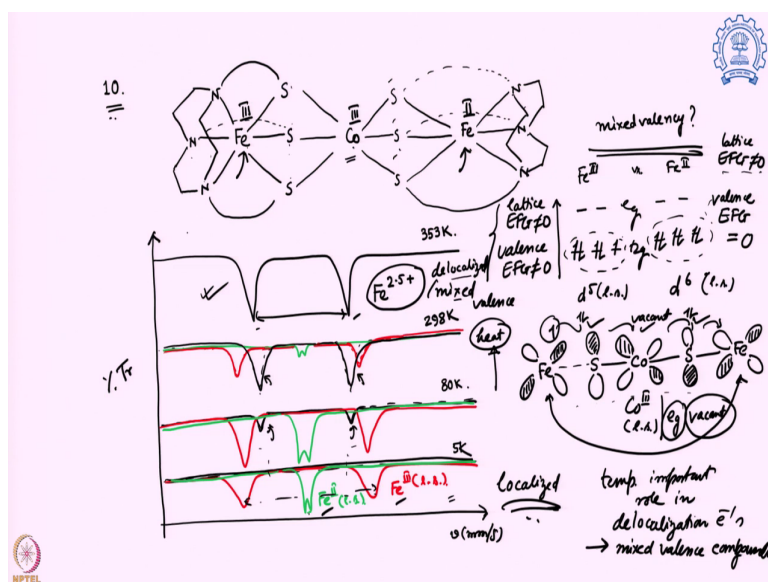 10.
III
Fe
S
S
S
N
N
N
III
Co
S
S
S
II
Fe
N
N
N
mixed valency?
Fe^III vs. Fe^II
lattice
EFG≠0
valence
EFG
=0
eg
t2g
d^5 (l.s.)
d^6 (l.s.)
lattice
EFG≠0
valence
EFG≠0
353K.
Fe^2.5+
delocalized
/mixed
valence
298K
heat
80K.
5K
% Tr
Fe^II (l.s.)
Fe^III (l.s.)
υ(mm/s)
localized
vacant
Fe
S
Co
S
Fe
Co^III
(l.s.)
eg
vacant
temp. important
role in
delocalization e⁻'s
→ mixed valence compounds
NPTEL